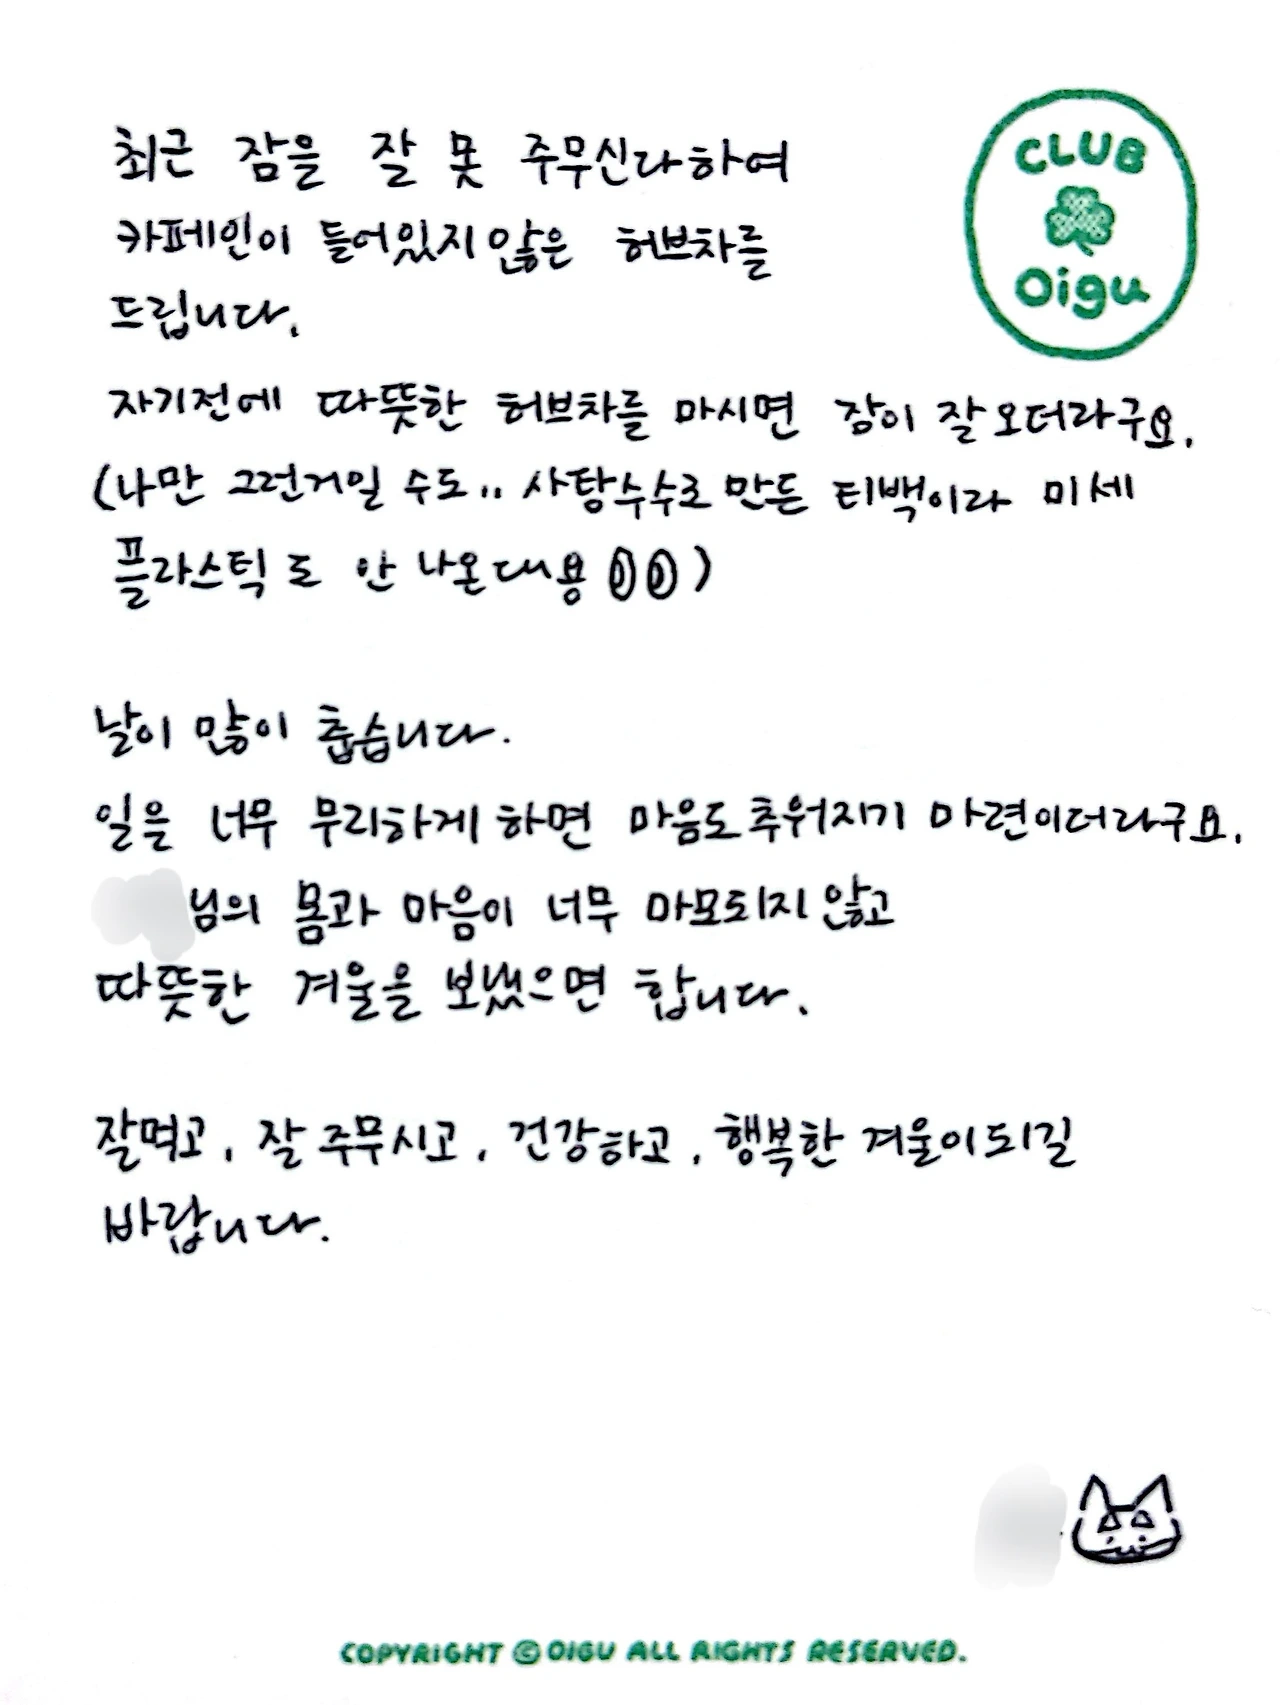 최근 잠을 잘 못 주무신다하여
카페인이 들어있지않은 허브차를
드립니다.
CLUB
Oigu
자기전에 따뜻한 허브차를 마시면 잠이 잘오더라구요.
(나만 그런거일 수도.. 사탕수수로 만든 티백이라 미세
플라스틱도 안 나온대용)
날이 많이 춥습니다.
일을 너무 무리하게 하면 마음도 추워지기 마련이더라구요.
님의 몸과 마음이 너무 마모되지 않고
따뜻한 겨울을 보냈으면 합니다.
잘먹고, 잘 주무시고, 건강하고, 행복한 겨울이되길
바랍니다.
COPYRIGHT © OIGU ALL RIGHTS RESERVED.